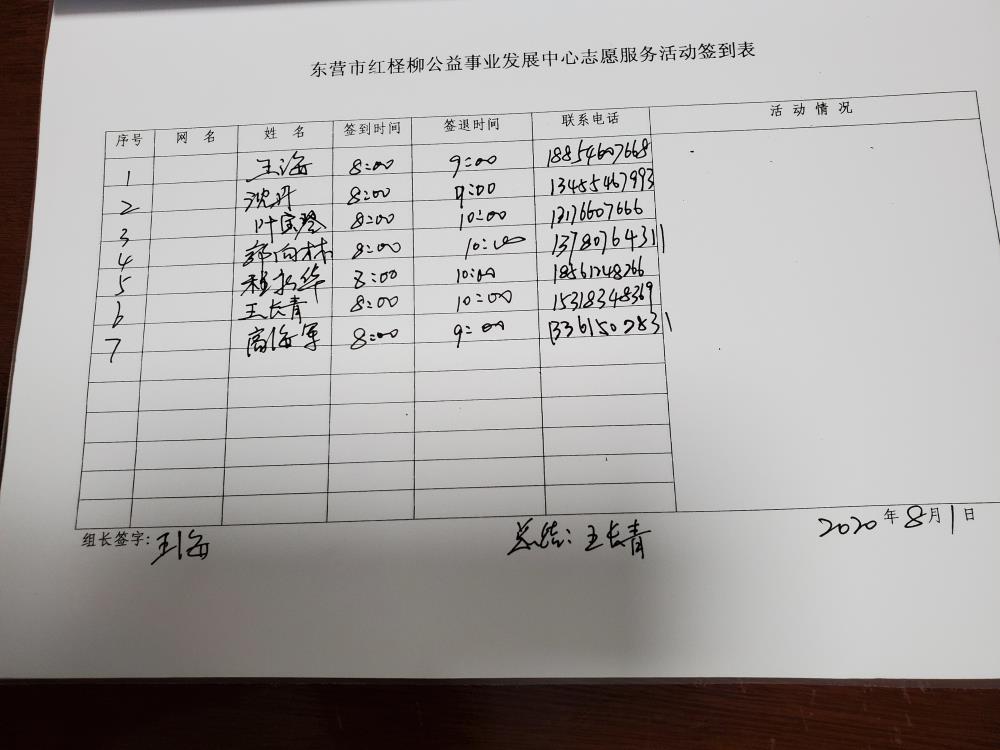 东营市红柽柳公益事业发展中心志愿服务活动签到表
序号 网名 姓名 签到时间 签退时间 联系电话 活动情况
1 王海 8:00 9:00 18854607668
2 沈丹 8:00 9:00 13455467993
3 8:00 10:00
4 郭向林 8:00 10:00 13780764311
5 程 华 8:00 10:00 18561248266
6 王长青 8:00 10:00 15318348369
7 高海军 8:00 9:00
组长签字: 王海 总结: 王长青 2020年8月1日